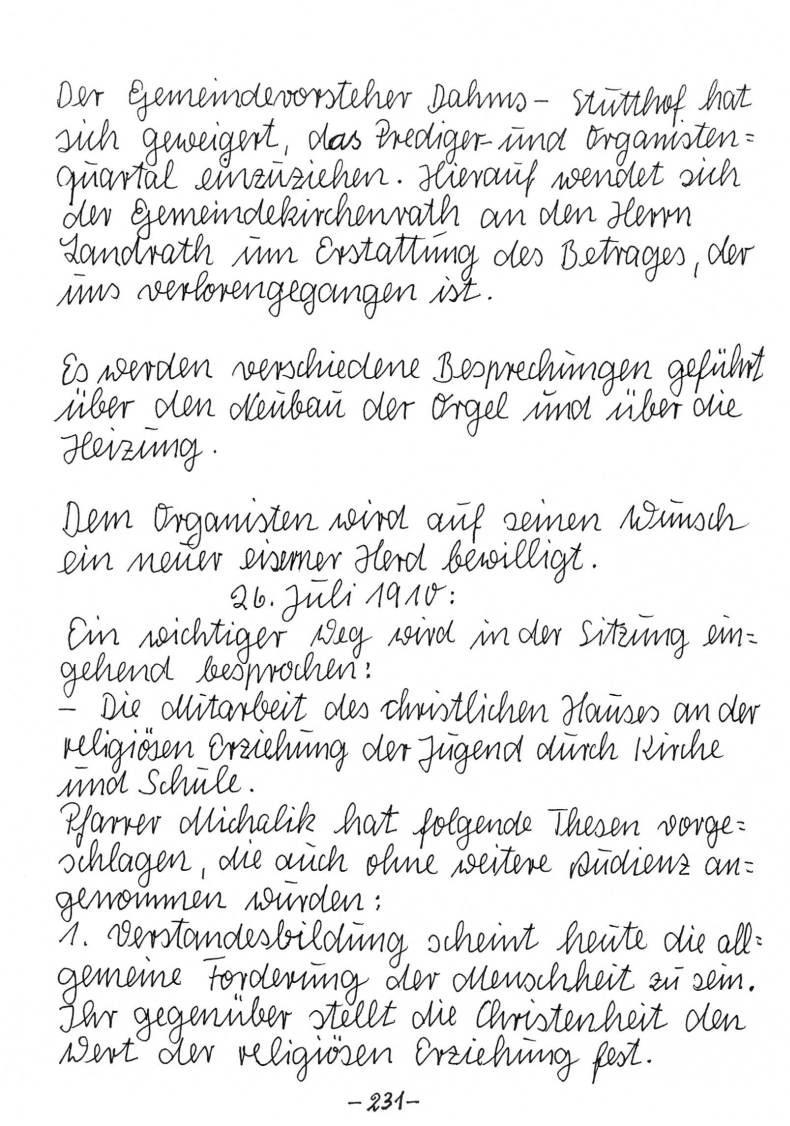 Der Gemeindevorsteher Dahms - Stutthof hat
sich geweigert, das Prediger- und Organisten=
quartal einzuziehen. Hierauf wendet sich
der Gemeindekirchenrath an den Herrn
Landrath um Erstattung des Betrages, der
uns verlorengegangen ist.

Es werden verschiedene Besprechungen geführt
über den Neubau der Orgel und über die
Heizung.

Dem Organisten wird auf seinen Wunsch
ein neuer eiserner Herd bewilligt.
26. Juli 1910:
Ein wichtiger Weg wird in der Sitzung ein=
gehend besprochen:
- Die Mitarbeit des christlichen Hauses an der
religiösen Erziehung der Jugend durch Kirche
und Schule.
Pfarrer Michalik hat folgende Thesen vorge=
schlagen, die auch ohne weitere Audienz an=
genommen wurden:
1. Verstandesbildung scheint heute die all=
gemeine Forderung der Menschheit zu sein.
Ihr gegenüber stellt die Christenheit den
Wert der religiösen Erziehung fest.
- 231 -